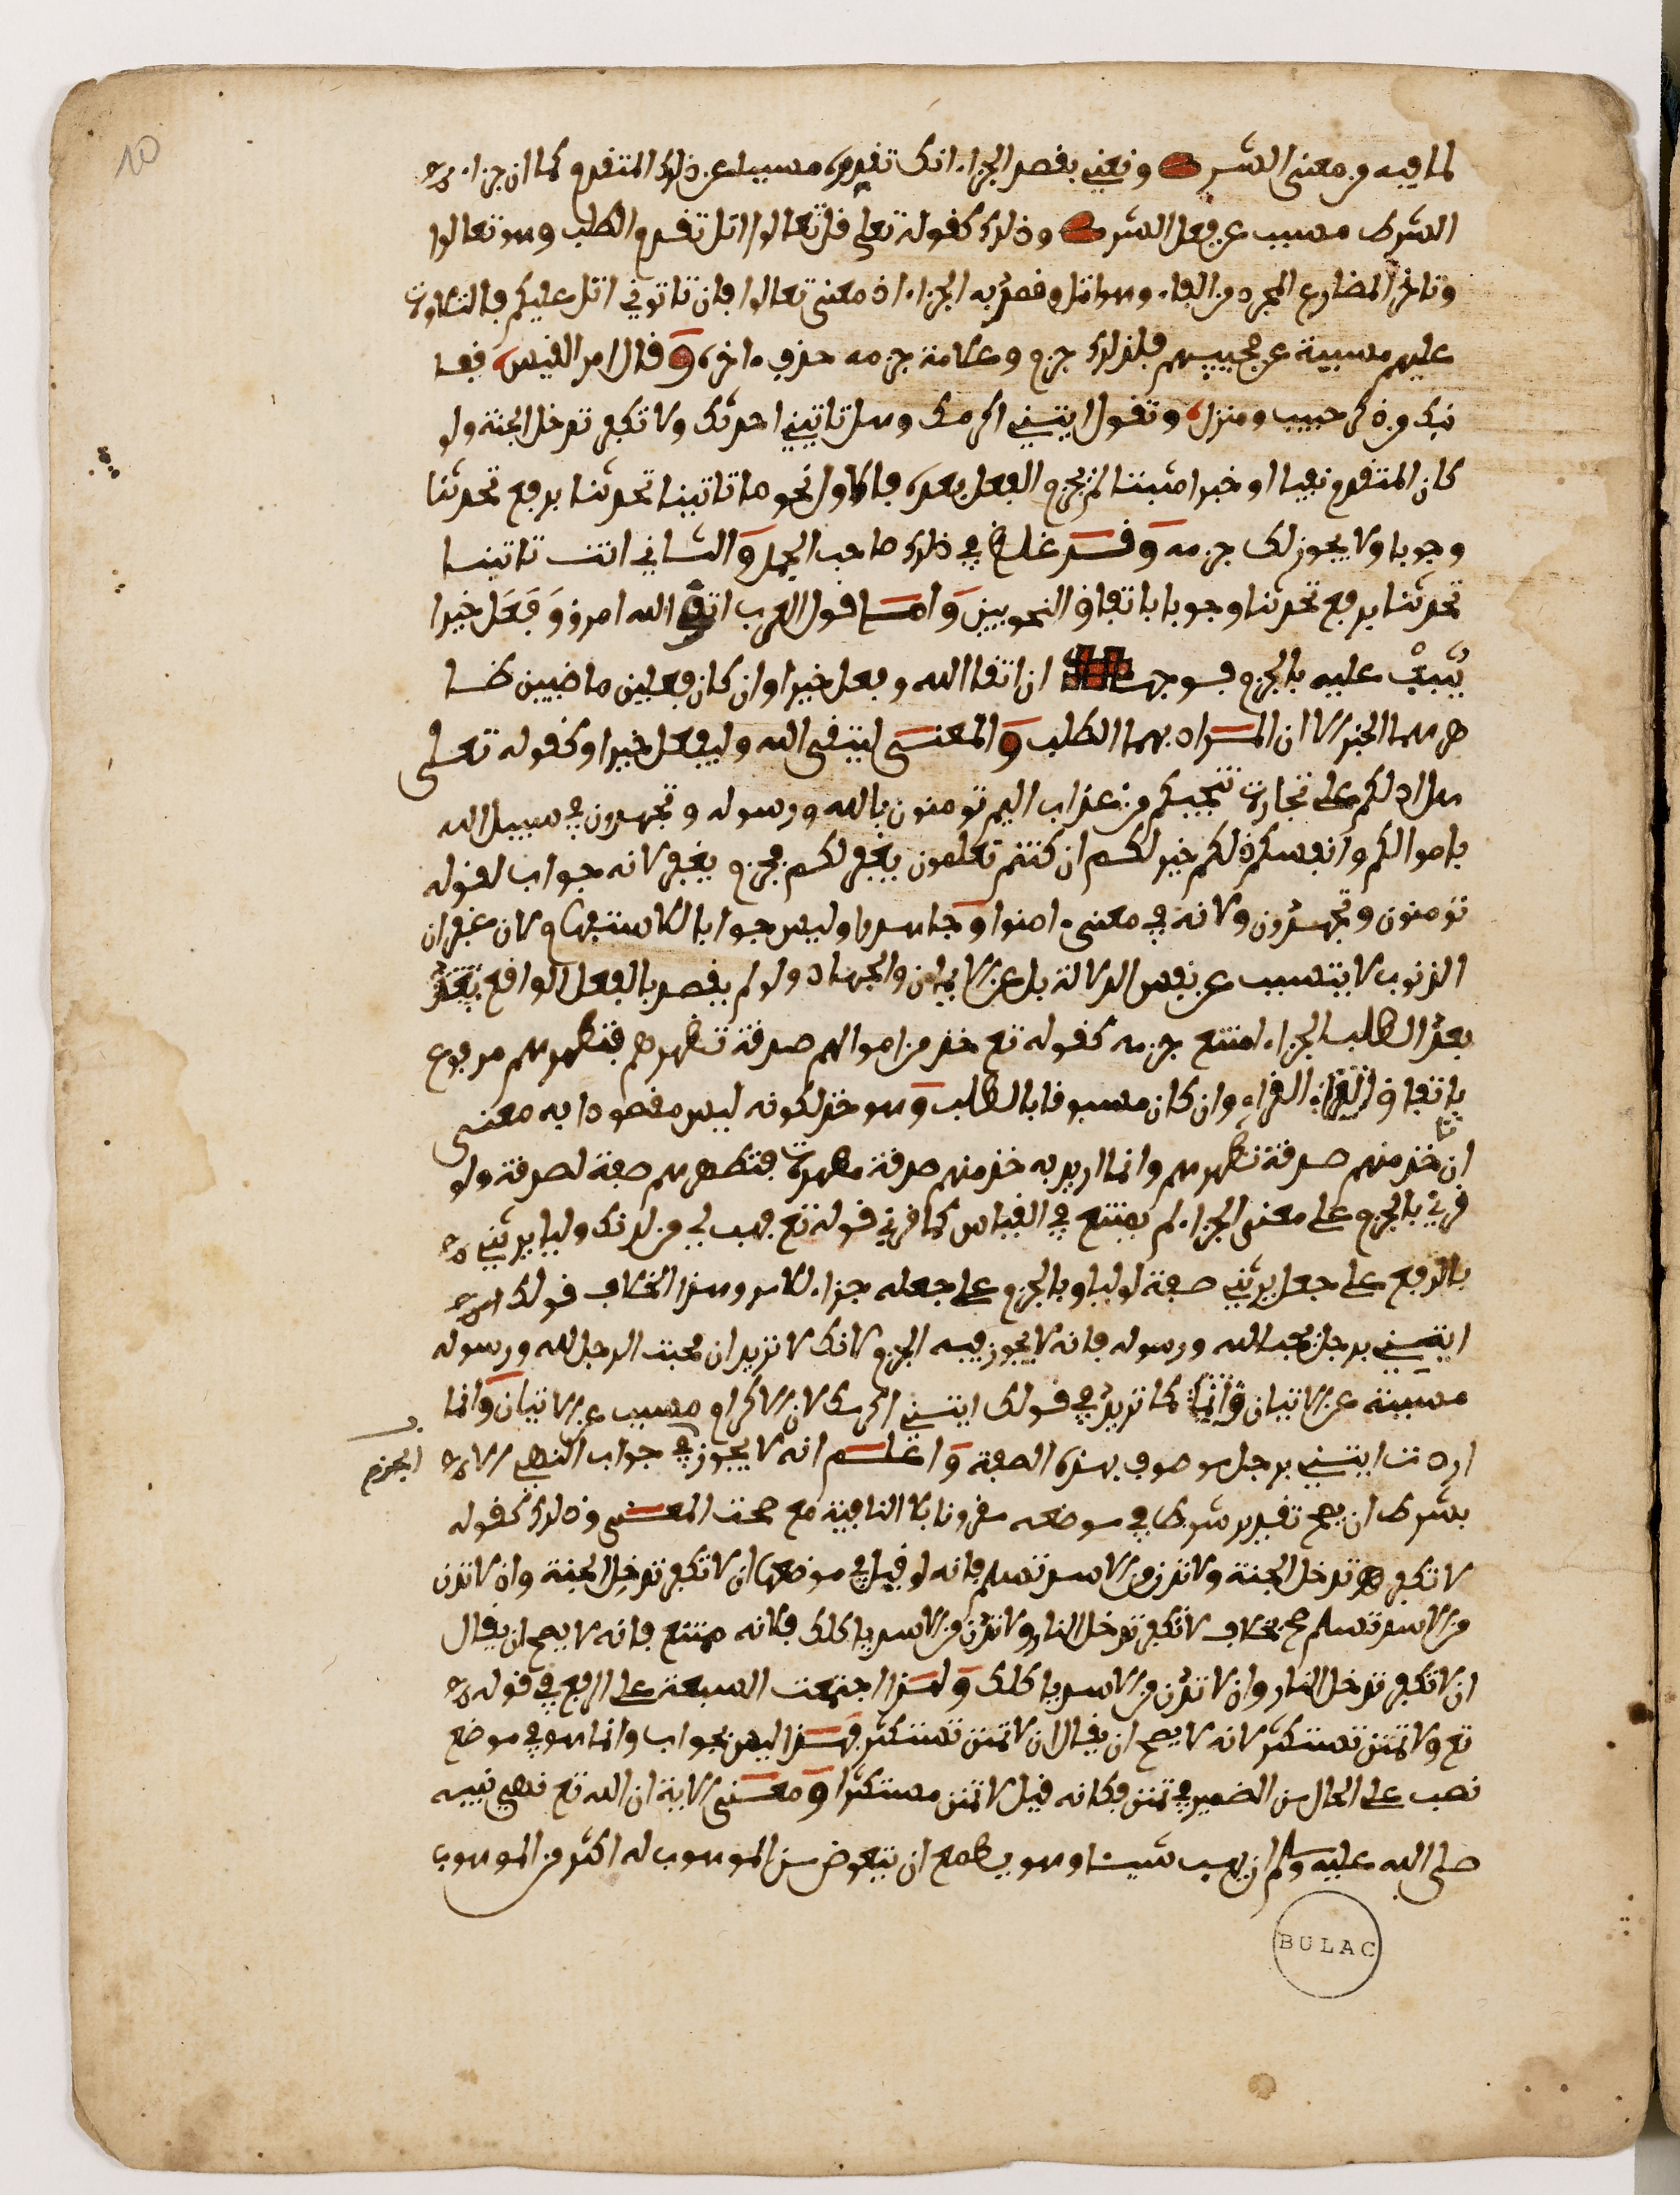 لما فيه من معنى الشرط ونعني بقصد الجزاء انك تقدره مسببا عن ذلك المتقدم كما ان جزاء
الشرط مسبب عن فعل الشرط وذلك كقوله تعلى قل تعالوا اتل تقدم الطلب وهو تعالوا
وتاخر المضارع المجرد من الفاء وهو اتل وقصد به الجزاء اذ معنى تعالوا فان تاتوني اتل عليكم فالتلاوت
عليهم مسببة عن مجييهم فلذلك جزم وعلامة جزمه حذف ءاخره وقال امر القيس قفا
نبك من ذكرى حبيب ومنزل وتقول ايتيني اكرمك وهل تاتيني احدثك ولا تكفر تدخل الجنة ولو
كان المتقدم نفيا او خبرا مثبتا لم يجزم الفعل بعده فالاول نحو ما تاتينا تحدثنا برفع تحدثنا
وجوبا ولا يجوز لك جزمه وقد غلط في ذلك صاحب الجمل والثاني انت تاتينا
تحدثنا برفع تحدثنا وجوبا باتفاق النحويين واما قول العرب اتقى الله امرؤ وَفَعَل خيرا
يثبْ عليه بالجزم فوجهه ان اتقا الله وفعل خيرا وان كان فعلين ماضيين ظا
هرهما الخبر الا ان المراد بهما الطلب والمعنى ليتقي الله وليفعل خيرا وكقوله تعلى
هل ادلكم على تجارت تنجيكم من عذاب اليم تومنون بالله ورسوله وتجهدون في سبيل الله
باموالكم وانفسكم ذلكم خير لكم ان كنتم تعلمون يغفر لكم فجزم يغفر لانه جواب لقوله
تومنون وتجهدون ولانه في معنى ءامنوا وجاهدوا وليس جوابا للاستفهام لان غفران
الذنوب لا يتسبب عن نفس الدلالة بل عن الايمان والجهاد ولو لم يقصد بالفعل الواقع
بعد الطلب الجزاء امتنع جزمه كقوله تع خذ من اموالهم صدقة تطهرهم فتطهرهم مرفوع
باتفاق القراء وان كان مسبوقا بالطلب وهو خذ لكونه ليس مقصودا به معنى
ان تاخذ منهم صدقة تطهرهم وانما اريد به خذ منهم صدقة مطهرت فتطهرهم صفة لصدقة ولو
قرئ بالجزم على معنى الجزاء لم يمتنع في القياس كما قرئ قوله تع فهب لي من لدنك وليا يرثني
بالرفع على جعل يرثني صفة لوليا وبالجزم على جعله جزاء للامر وهذا بخلاف قولك
ايتيني برجل يحب الله ورسوله فانه لا يجوز فيه الجزم لانك لا تريد ان محبت الرجل لله ورسوله
مسببة عن الاتيان كما تريد في قولك ايتيني اكرمك لان الاكرام مسبب عن الاتيان وانما
اردت ايتيني برجل موصوف بهذه الصفة واعلم انه لا يجوز في جواب النهي الا الجزم
بشرط ان يصح تقدير شرط في موضعه مقرونا بلا النافية مع صحت المعنى وذلك كقوله
لا تكفر تدخل الجنة ولا تدن من الاسد تسلم فانه لو قيل في موضعها ان لا تكفر تدخل الجنة وان لا تدن
من الاسد تسلم صح بخلاف لا تكفر تدخل النار ولا تدن من الاسد ياكلك فلانه ممتنع فانه لا يصح ان يقال
ان لا تكفر تدخل النار وان لا تدن من الاسد ياكلك ولهذا اجتمعت السبعة على الرفع في قوله
تع ولا تمنن تستكثر لانه لا يصح ان يقال ان لا تمنن تستكثر فهذا ليس بجواب وانما هو في موضع
نصب على الحال من الضمير في تمنن فكانه قيل لا تمنن مستكثرا ومعنى الاية ان الله تع نهى نبيه
صلى الله عليه وسلم ان يهب شيئا وهو يطمع ان يتعوض من الموهوب له اكثر من الموهوب
BULAC